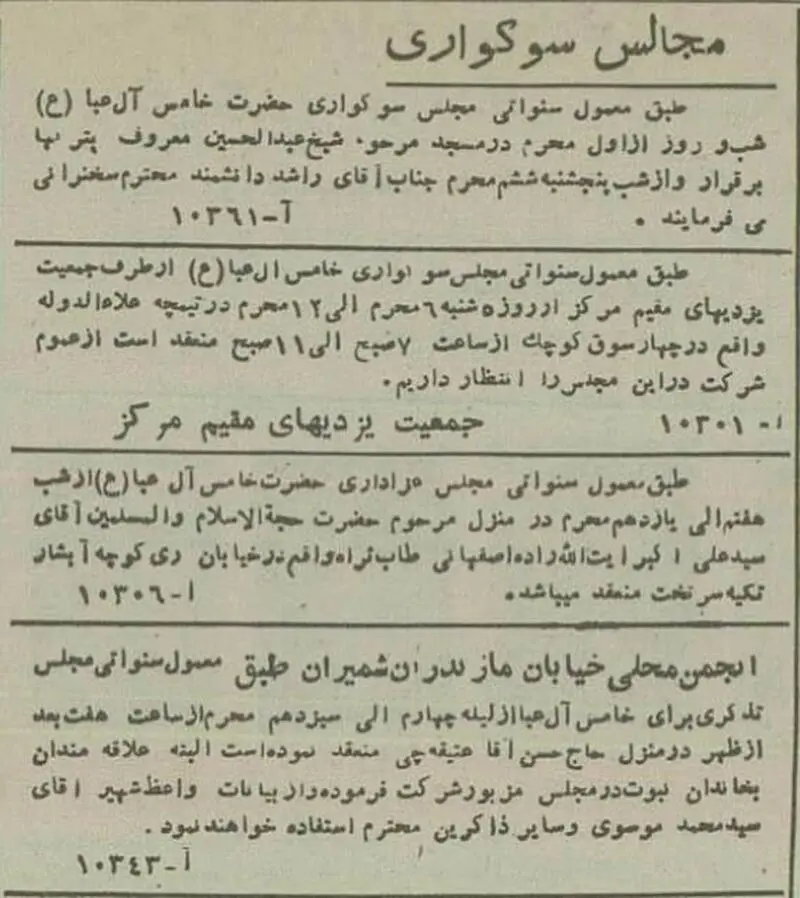 مجالس سوکواری
طبق معمول سنواتی مجلس سوکواری حضرت خامس آل‌عبا (ع)
شب و روز از اول محرم در مسجد مرحوم شیخ عبدالحسین معروف بترکها
برقرار و از شب پنجشنبه ششم محرم جناب آقای راشد دانشمند محترم سخنرانی
می فرمایند .
آ-۱۰۳۶۱
طبق معمول سنواتی مجلس سوکواری خامس آل عبا (ع) از طرف جمعیت
یزدیهای مقیم مرکز از روز ۵شنبه ۶ محرم الی ۱۲ محرم در تیمچه علاءالدوله
واقع در چهارسوق کوچك از ساعت ۷ صبح الی ۱۱ صبح منعقد است از عموم
شرکت در این مجلس را انتظار داریم.
آ- ۱۰۳۰۱
جمعیت یزدیهای مقیم مرکز
طبق معمول سنواتی مجلس عزاداری حضرت خامس آل عبا (ع) از شب
هفتم الی یازدهم محرم در منزل مرحوم حضرت حجةالاسلام والمسلمین آقای
سید علی اکبر آیت‌الله زاده اصفهانی طاب ثراه واقع در خیابان ری کوچه آبشار
تکیه سرتخت منعقد میباشد.
آ-۱۰۳۰۶
انجمن محلی خیابان مازندران شمیران طبق معمول سنواتی مجلس
تذکری برای خامس آل عبا از لیله چهارم الی سیزدهم محرم از ساعت هفت بعد
از ظهر در منزل حاج حسن آقا عتیقه چی منعقد نموده است البته علاقه مندان
بخاندان نبوت در مجلس مزبور شرکت فرموده و از بیانات واعظ شهیر آقای
سید محمد موسوی و سایر ذاکرین محترم استفاده خواهند نمود .
آ-۱۰۳۴۳